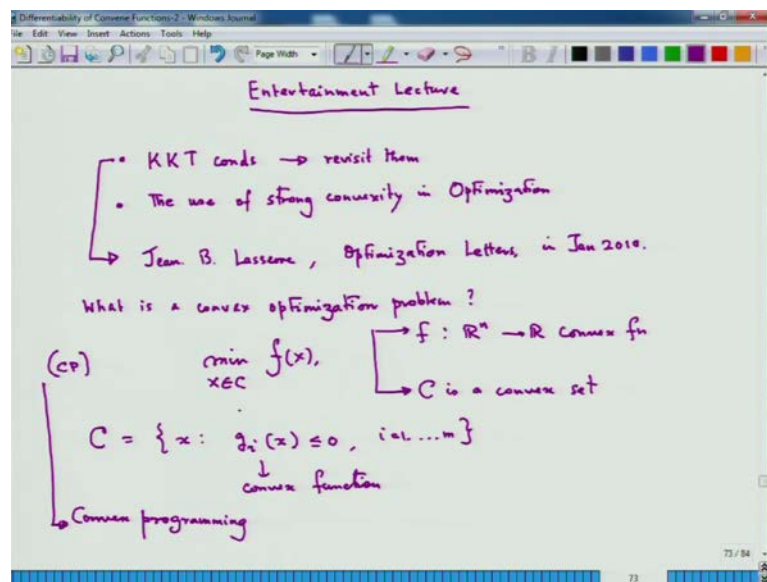 Differentiability of Convene Functions-2 - Windows Journal
File Edit View Insert Actions Tools Help
Page Width
Entertainment Lecture
• KKT conds → revisit them
• The use of strong convexity in Optimization
→ Jean. B. Lasserre, Optimization Letters, in Jan 2010.
What is a convex optimization problem?
(CP) min f(x), → f : ℝⁿ → ℝ convex fn
x∈C → C is a convex set
C = {x : gᵢ(x) ≤ 0, i=1....m}
↓
convex function
→ Convex programming
73 / 84
73